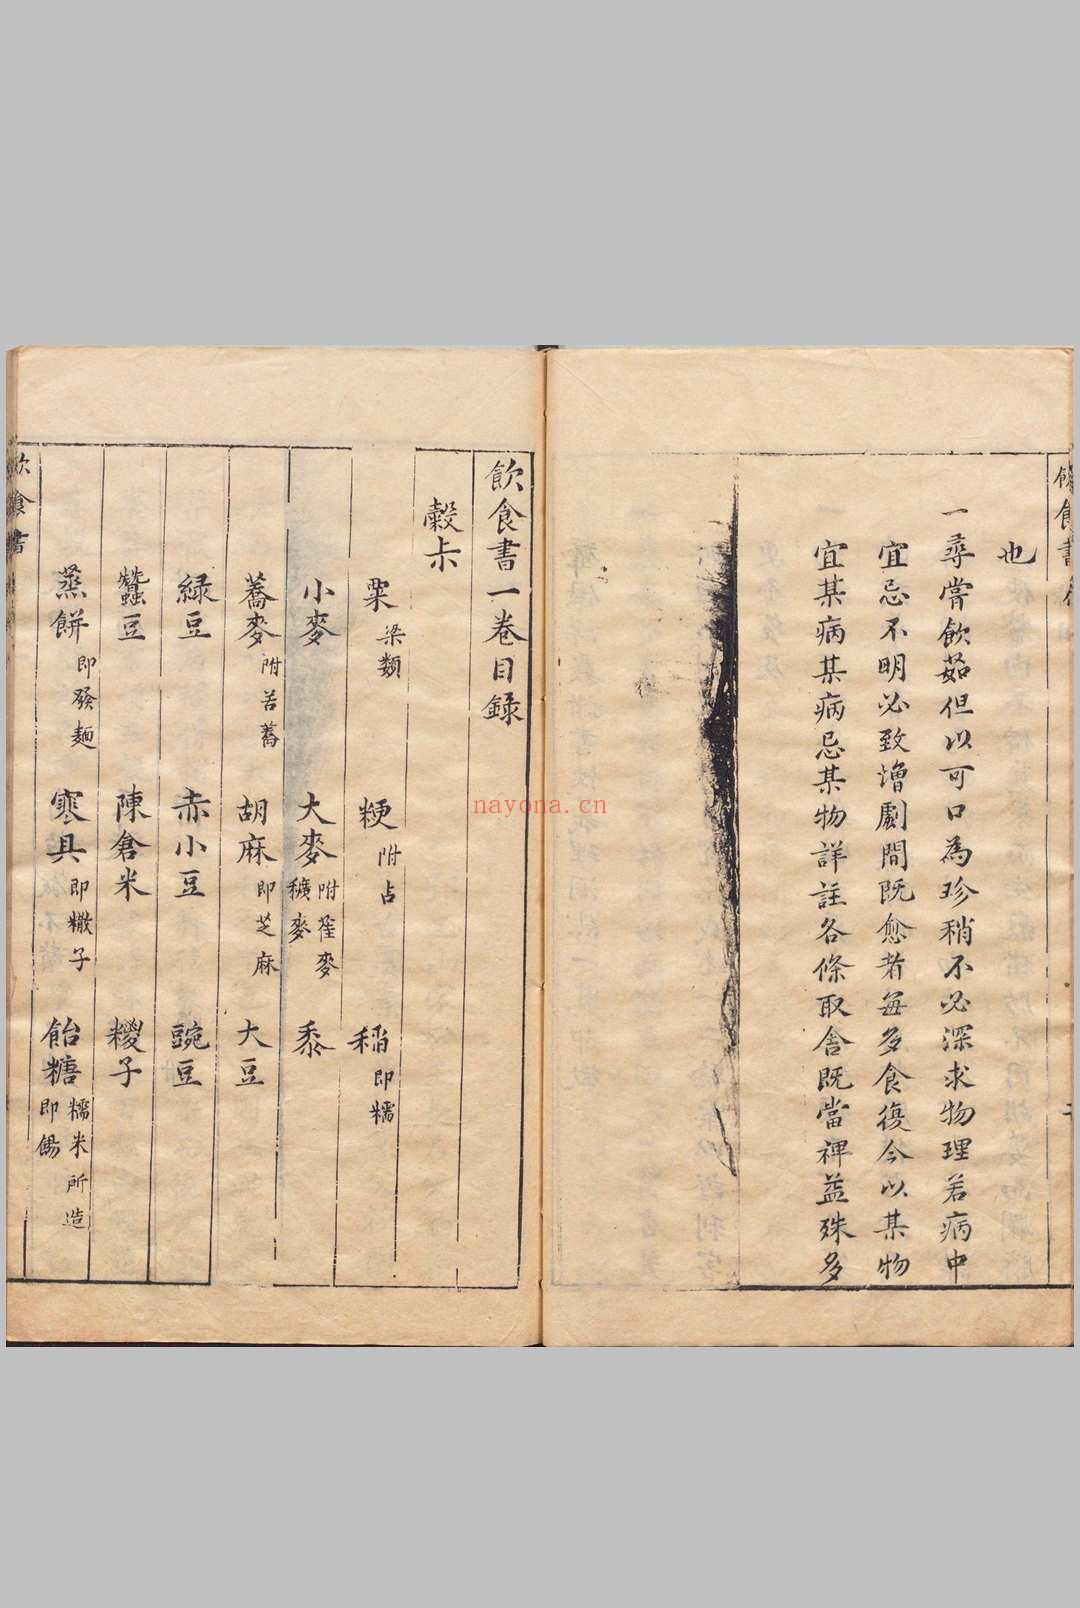 飲食書
也
一尋嘗飲茹但以可口為珍稍不必深求物理若病中
宜忌不明必致增劇間既愈者每多食復今以某物
宜某病某病忌某物詳註各條取舍既當裨益殊多
飲食書一卷目錄
穀尗
粟 梁類 粳 附占 稻 即糯
小麥 大麥 附雀麥 穬麥 黍
蕎麥 附苦蕎 胡麻 即芝麻 大豆
綠豆 赤小豆 豌豆
蠶豆 陳倉米 糉子
蒸餅 即發麵 寒具 即糤子 飴糖 糯米所造 即餳
飲食書
nayona.cn